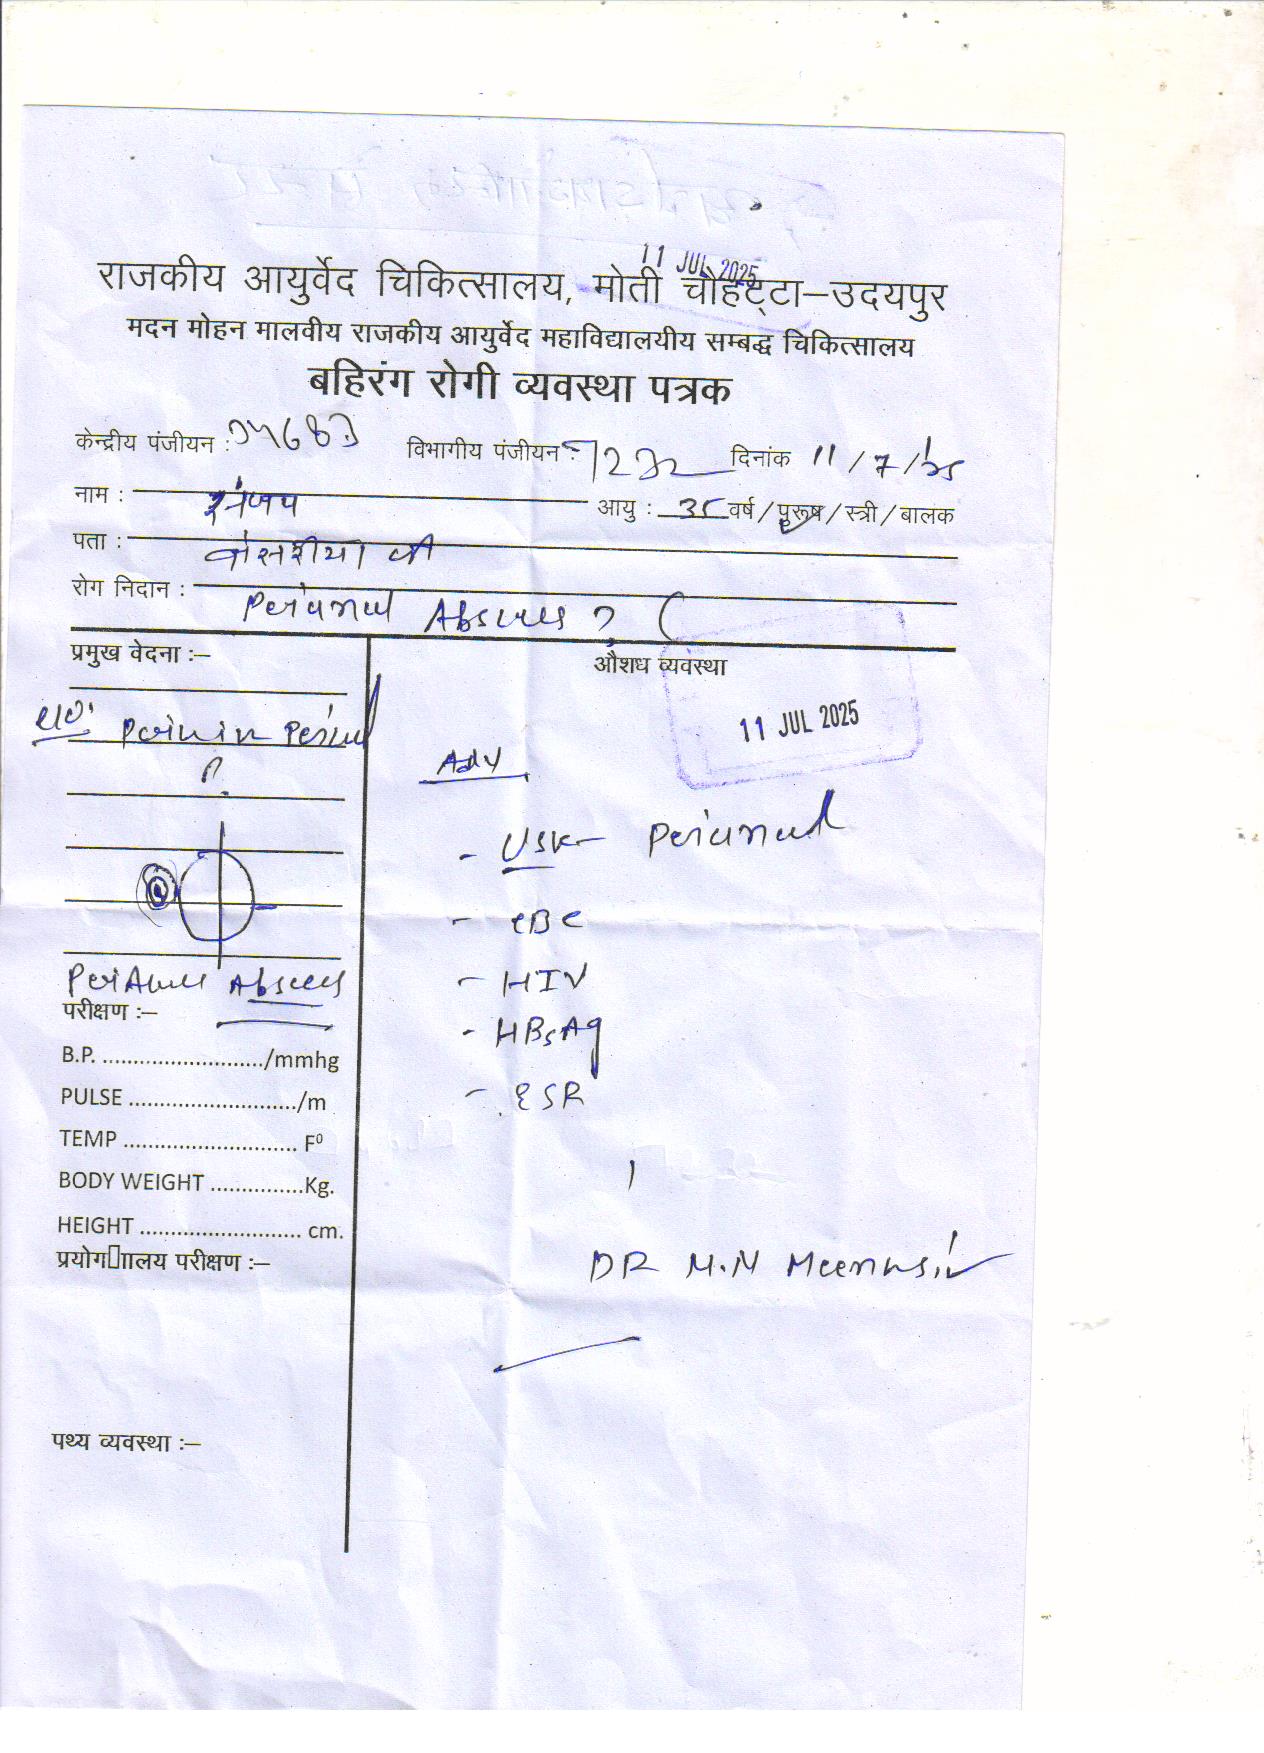 11 JUL 2025
राजकीय आयुर्वेद चिकित्सालय, मोती चौहट्टा–उदयपुर
मदन मोहन मालवीय राजकीय आयुर्वेद महाविद्यालयीय सम्बद्ध चिकित्सालय
बहिरंग रोगी व्यवस्था पत्रक
केन्द्रीय पंजीयन : विभागीय पंजीयन : दिनांक 11/7/25
नाम : संजय आयु : 35 वर्ष/पुरूष/स्त्री/बालक
पता : केसरीया जी
रोग निदान : Perianal Abscess ?
प्रमुख वेदना :–
औशध व्यवस्था
11 JUL 2025
Adv
- USG - Perianal
- CBC
- HIV
- HBsAg
- ESR
DR M.M
PeriAnal Abscess
परीक्षण :–
B.P. ........................./mmhg
PULSE ........................../m
TEMP ........................... F⁰
BODY WEIGHT ...............Kg.
HEIGHT ......................... cm.
प्रयोग□ाालय परीक्षण :–
पथ्य व्यवस्था :–